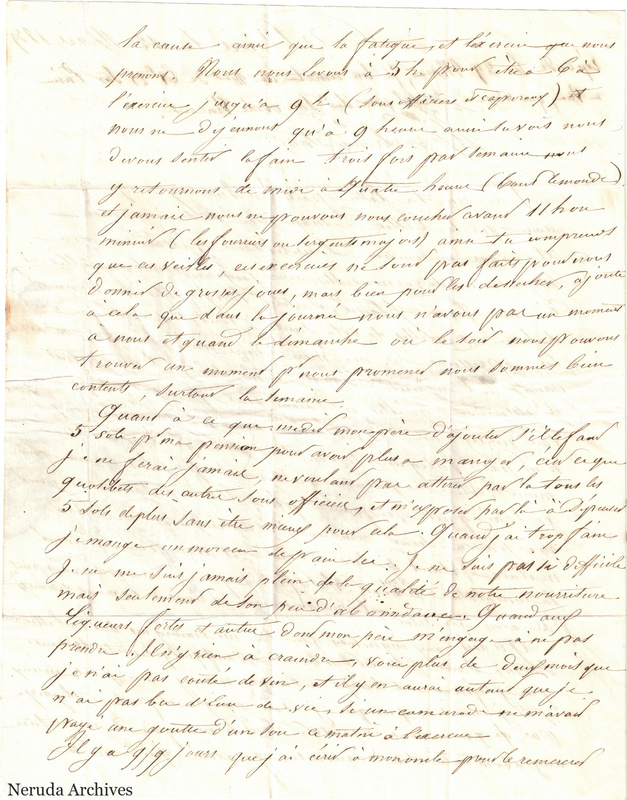 la cause ainsi que la fatigue et l'exercice que nous
prenons. Nous nous levons à 5h pour être à 6 à
l'exercice jusqu'à 9 h (sous officiers et caporaux) et
nous ne déjeunont qu'à 9 heure ainsi tu vois nous
devons sentir la faim trois fois par semaine nous
y retournons de midi à quatre heure (tout le monde).
et jamais nous ne pouvons nous coucher avand 11 h ou
minuit (les fourriers ou sergents majors) ainsi tu comprends
que ces veilles, ces exercices ne sont pas faits pour nous
donner de grosses joues, mais bien pour les dessecher, ajoute
à cela que dans la journée nous n'avons pas un moment
a nous et quand le dimanche où le soir nous pouvons
trouver un moment pr nous promener nous sommes bien
contents, surtout la semaine
Quand à ce que me dit mon père d'ajouter s'il le faut
5 sols pr ma pension pour avoir plus a manger, c'est ce que
je ne ferai jamais, ne voulant pas attirer par la tous les
quolibets des autre sous officier, et m'exposer par là à dépenser
5 sols de plus sans être mieux pour cela. Quand j'ai trop faim
je mange un morceau de pain sec. Je ne suis pas si difficile
Je ne me suis jamais plein de la qualité de notre nourriture
mais seulement de son peu d'abondance. Quand aux
liqueurs fortes et autre dont mon père m'engage à ne pas
prendre. Il n'y rien à craindre, voici plus de deux mois que
je n'ai pas gouté de vin, et il y en aurai autant que je
n'ai pas bu d'eau de vie, si un camarade ne m'avait
payé une goutte d'un sou ce matin à l'exercice
Il y a qq jours que j'ai écrit à mon oncle pour le remercier
Neruda Archives